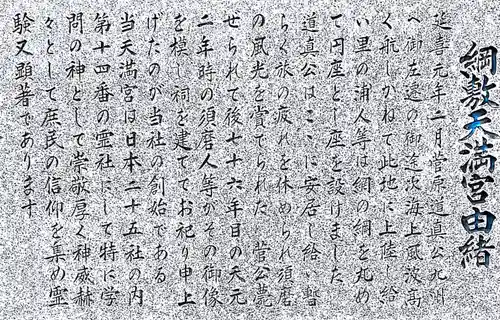 綱敷天満宮由緒
延喜元年二月菅原道真公九州
へ御左遷の御途次海上風波高
く航しかねて此地に上陸し給
い里の浦人等は網の綱を丸め
て円座とし座を設けました
道真公はここに安居し給い暫
らく旅の疲れを休められ須磨
の風光を賞でられた 菅公薨
ぜられて後七十六年目の天元
二年時の須磨人等がその御像
を模し祠を建ててお祀り申上
げたのが当社の創始である
当天満宮は日本二十五社の内
第十四番の霊社にして特に学
問の神として崇敬厚く神威赫
々として庶民の信仰を集め霊
験又顕著であります